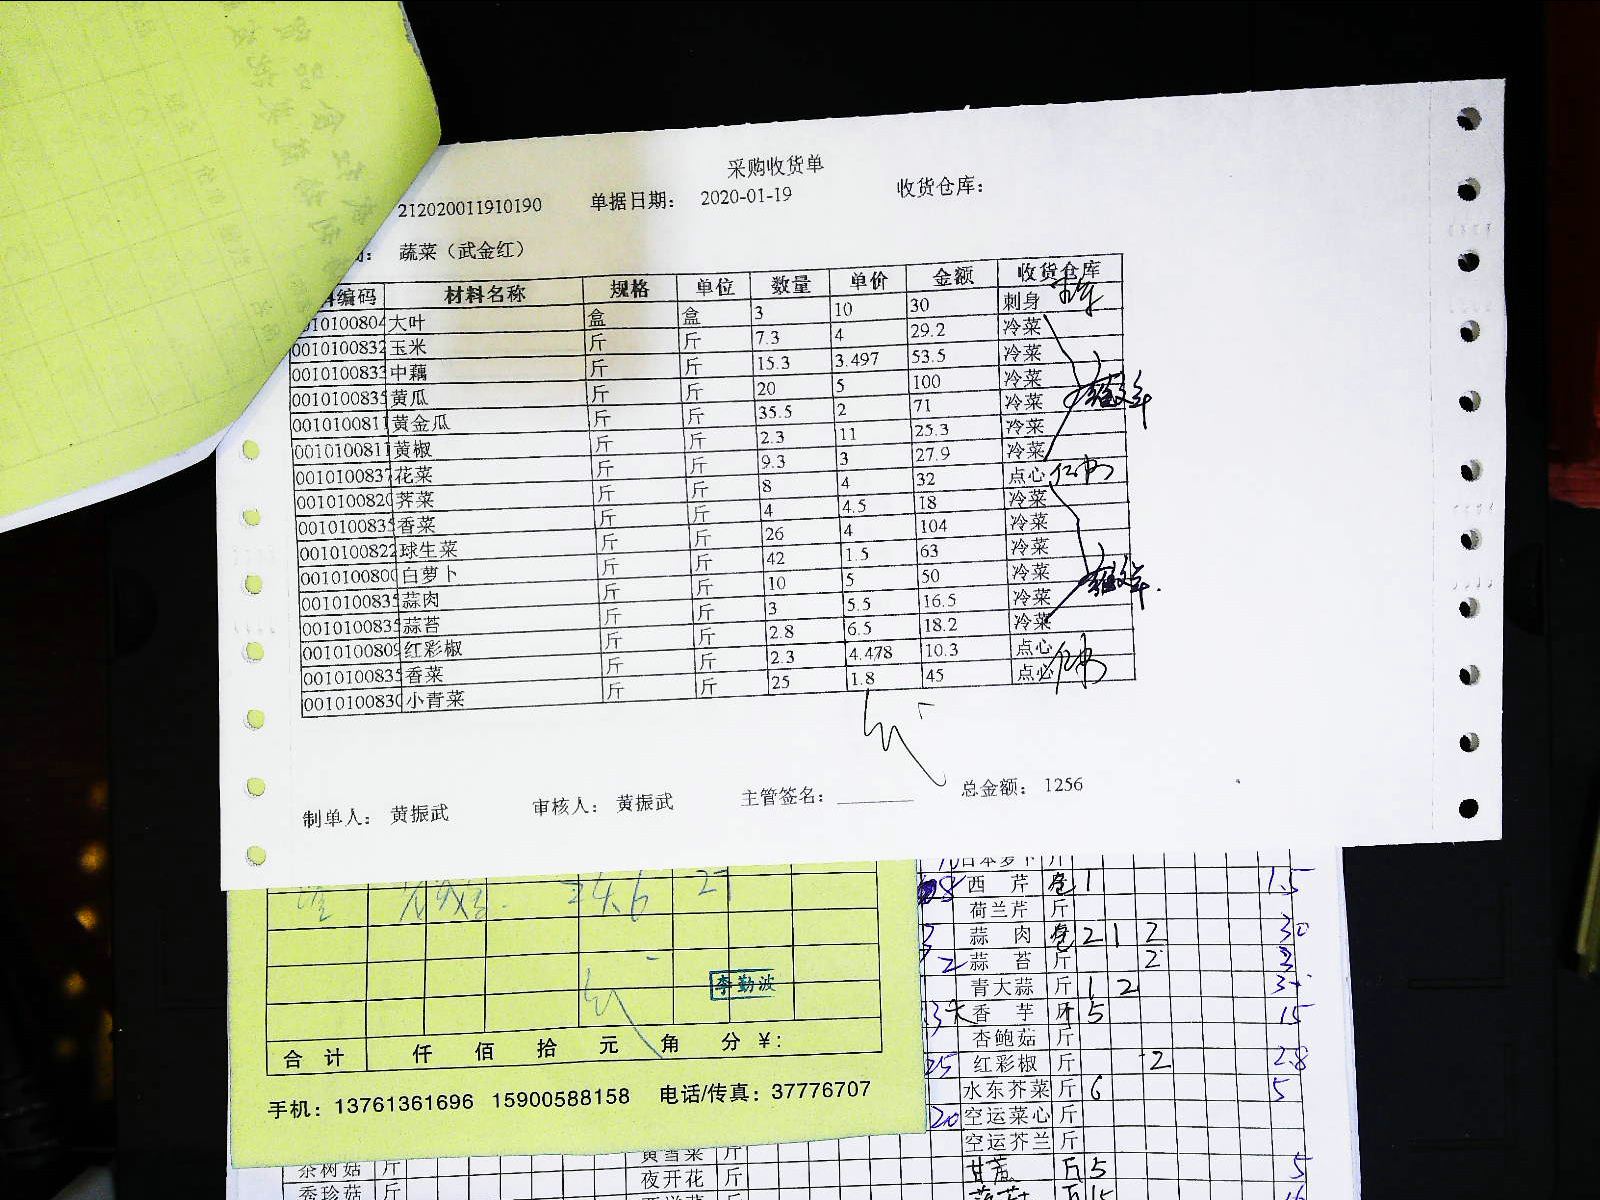 采购收货单
212020011910190 单据日期: 2020-01-19 收货仓库:
蔬菜（武金红）
编码 材料名称 规格 单位 数量 单价 金额 收货仓库
0010100804 大叶 盒 盒 3 10 30 刺身
0010100832 玉米 斤 斤 7.3 4 29.2 冷菜
0010100833 中藕 斤 斤 15.3 3.497 53.5 冷菜
001010083 黄瓜 斤 斤 20 5 100 冷菜
001010081 黄金瓜 斤 斤 35.5 2 71 冷菜
001010081 黄椒 斤 斤 2.3 11 25.3 冷菜
001010083 花菜 斤 斤 9.3 3 27.9 冷菜
001010082 荠菜 斤 斤 8 4 32 点心
001010083 香菜 斤 斤 4 4.5 18 冷菜
001010082 球生菜 斤 斤 26 4 104 冷菜
001010080 白萝卜 斤 斤 42 1.5 63 冷菜
001010083 蒜肉 斤 斤 10 5 50 冷菜
001010083 蒜苔 斤 斤 3 5.5 16.5 冷菜
001010080 红彩椒 斤 斤 2.8 6.5 18.2 冷菜
001010083 香菜 斤 斤 2.3 4.478 10.3 点心
001010083 小青菜 斤 斤 25 1.8 45 点心
制单人: 黄振武 审核人: 黄振武 主管签名: 总金额: 1256
24.6
李勤波
合计 仟 佰 拾 元 角 分 ¥:
手机: 13761361696 15900588158 电话/传真: 37776707
日本萝卜 斤
西芹 1 1.5
荷兰芹 斤
蒜肉 2 1 2 30
2 蒜苔 斤 2 3
青大蒜 斤 1 2
香芋 斤 5 15
杏鲍菇 斤
红彩椒 斤 2 2.8
水东芥菜 斤 6 5
20 空运菜心 斤
空运芥兰 斤
茶树菇 斤 黄雪菜 斤 5 5
秀珍菇 斤 夜开花 斤